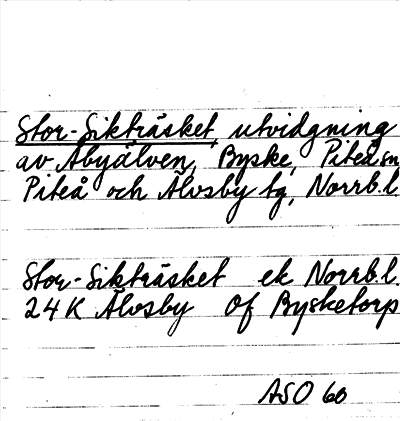 Stor-Sikträsket, utvidgning
av Åbyälven, Byske, Piteå sn
Piteå och Älvsby tg, Norrb.l.
Stor-Sikträsket ek Norrb.l.
24K Älvsby Of Bysketorp
ASO 60